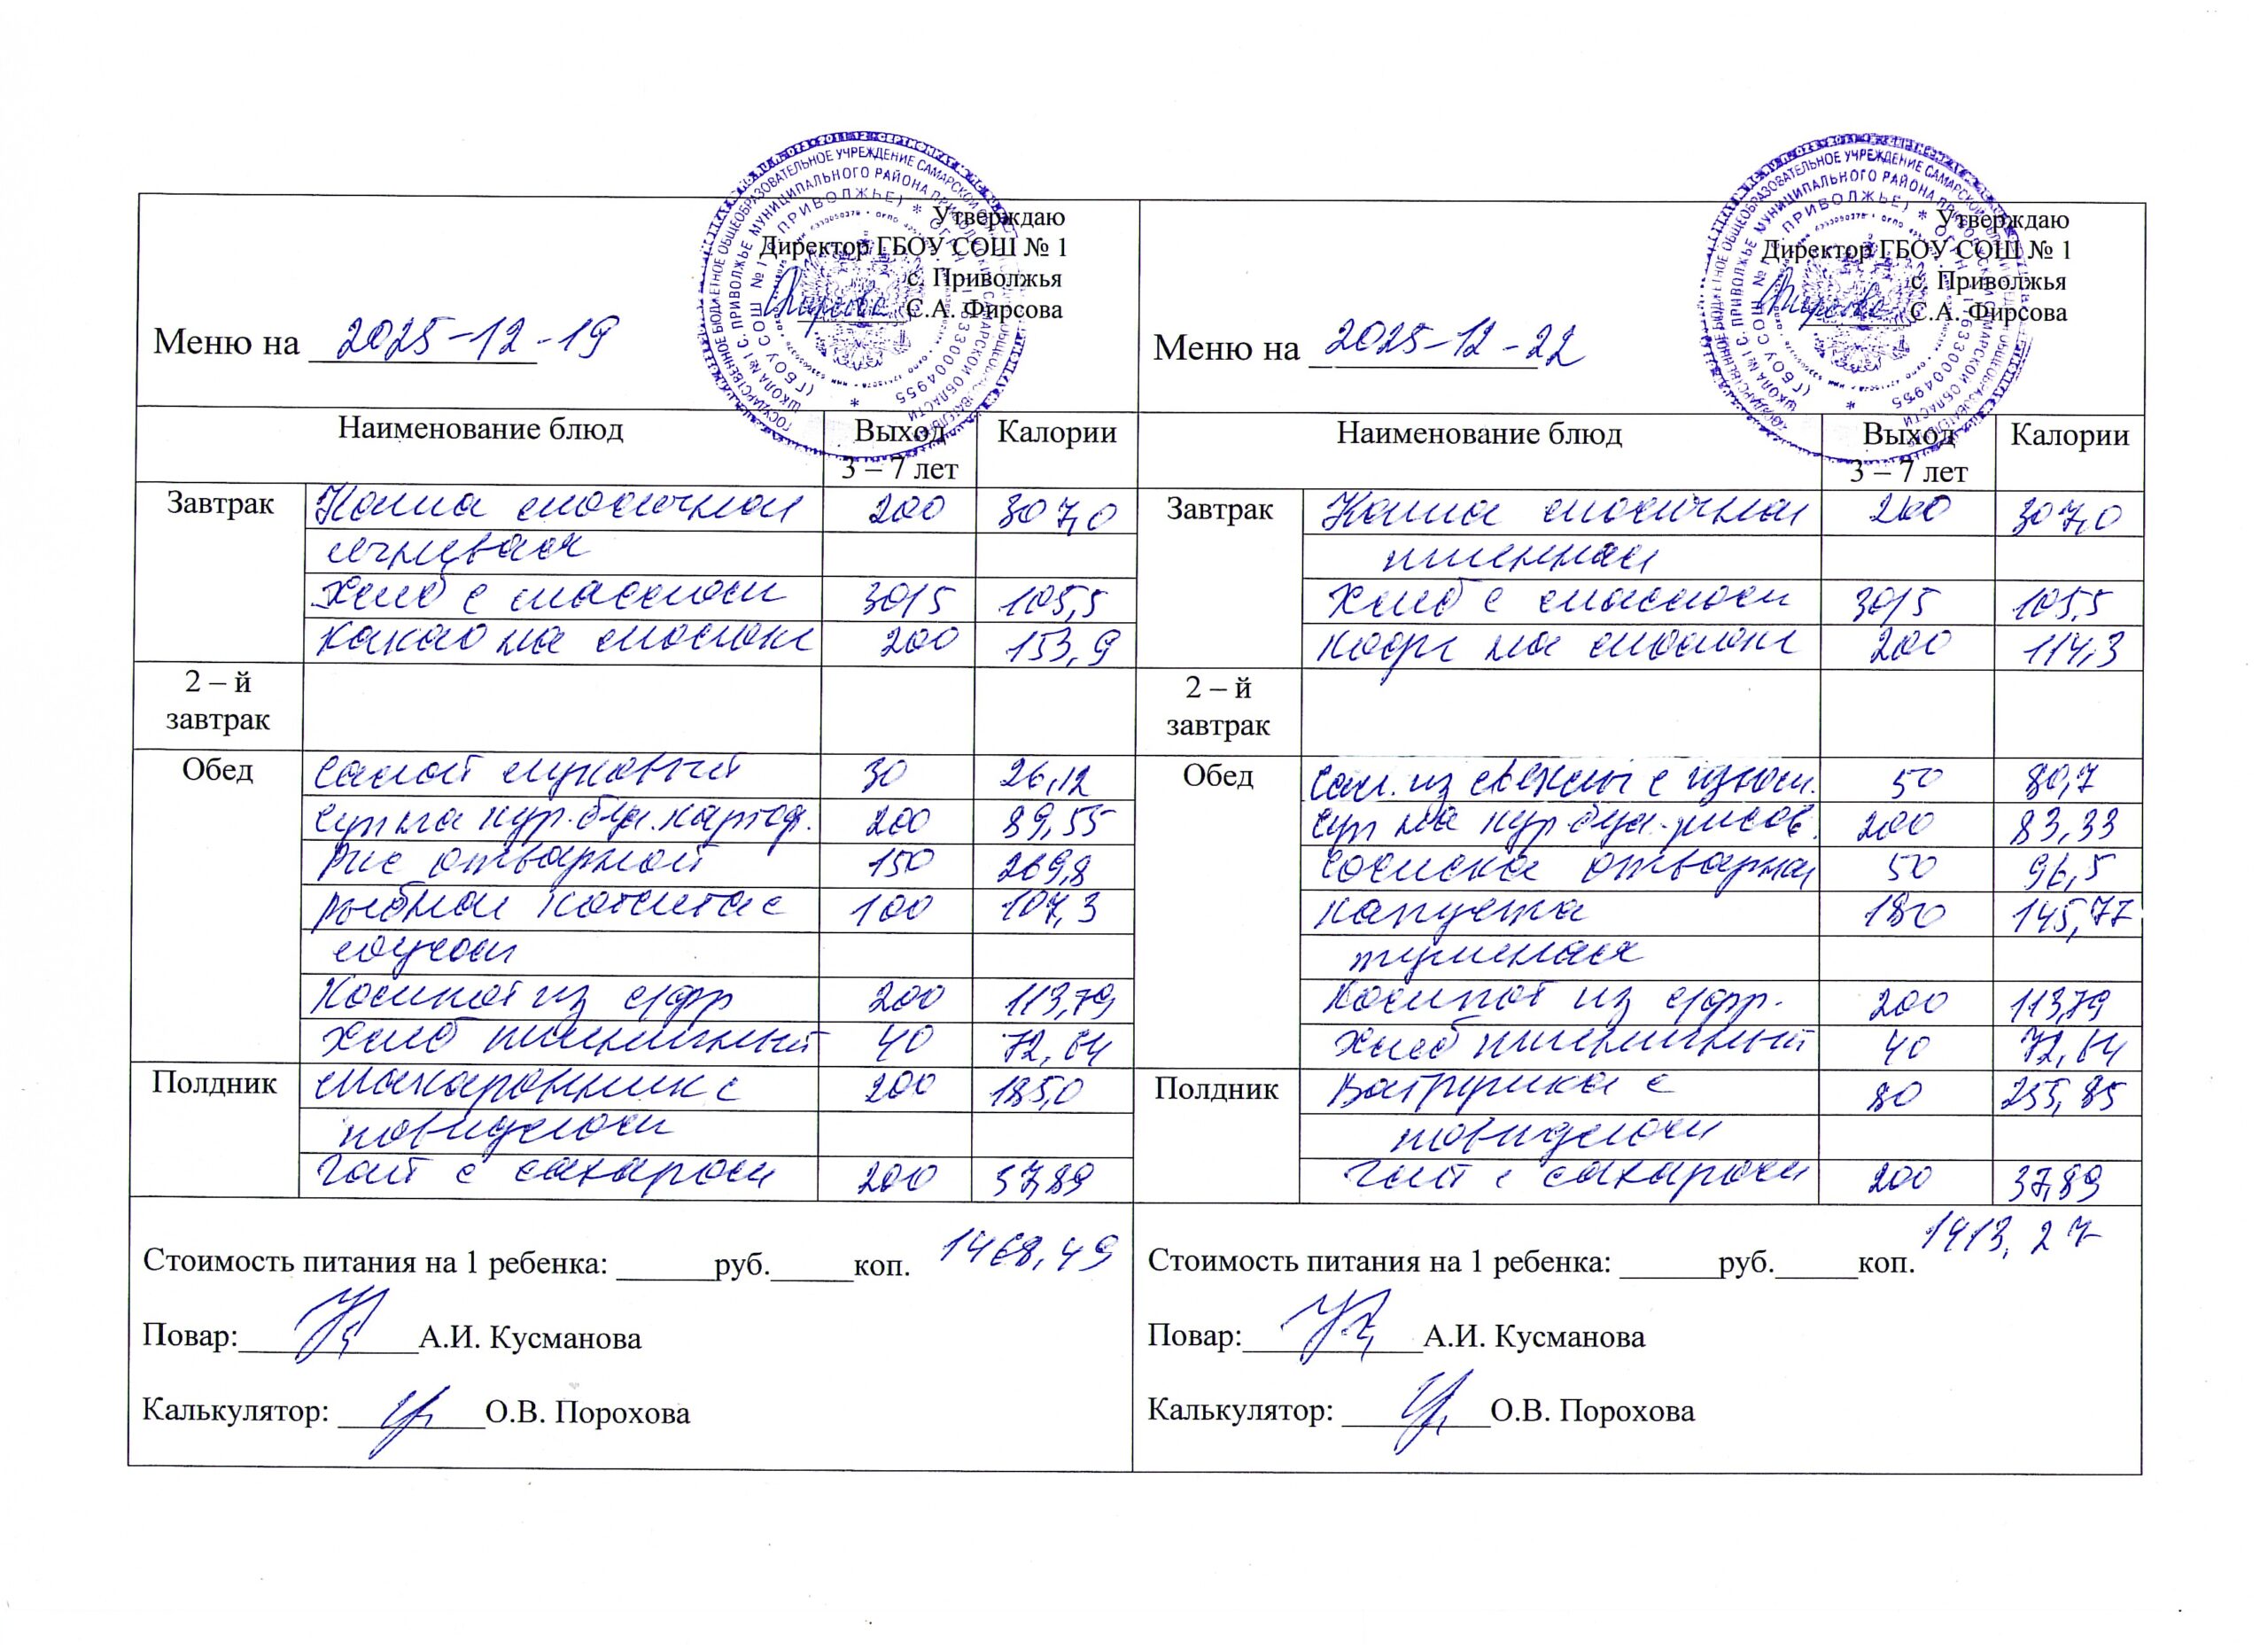 Утверждаю
Директор ГБОУ СОШ № 1
с. Приволжья
С.А. Фирсова
Меню на 2025-12-19
Наименование блюд Выход Калории
3 – 7 лет
Завтрак Каша молочная 200 307,0
ячневая
Хлеб с маслом 30/5 105,5
Какао на молоке 200 153,9
2 – й
завтрак
Обед Салат луковый 30 26,12
Суп на кур. бул. картоф. 200 89,55
Рис отварной 150 269,8
Рыбная котлета с 100 107,3
соусом
Компот из с/фр 200 113,79
Хлеб пшеничный 40 72,64
Полдник Макаронник с 200 185,0
повидлом
Чай с сахаром 200 37,89
Стоимость питания на 1 ребенка: руб. коп. 1468,49
Повар: А.И. Кусманова
Калькулятор: О.В. Порохова
Утверждаю
Директор ГБОУ СОШ № 1
с. Приволжья
С.А. Фирсова
Меню на 2025-12-22
Наименование блюд Выход Калории
3 – 7 лет
Завтрак Каша молочная 200 307,0
пшенная
Хлеб с маслом 30/5 105,5
Кофе на молоке 200 114,3
2 – й
завтрак
Обед Сал. из свеклы с изюм. 50 80,7
Суп на кур бул. рисов. 200 83,33
Сосиска отварная 50 96,5
Капуста 180 145,77
тушеная
Компот из с/фр. 200 113,79
Хлеб пшеничный 40 72,64
Полдник Ватрушка с 80 255,85
повидлом
Чай с сахаром 200 37,89
Стоимость питания на 1 ребенка: руб. коп. 1413,27
Повар: А.И. Кусманова
Калькулятор: О.В. Порохова